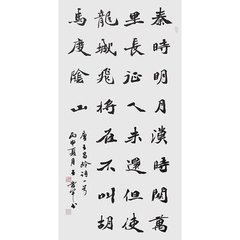 秦時明月漢時関萬
里長征人未還但使
龍城飛将在不叫胡
馬度陰山
唐王昌齡詩一首
丙申夏月